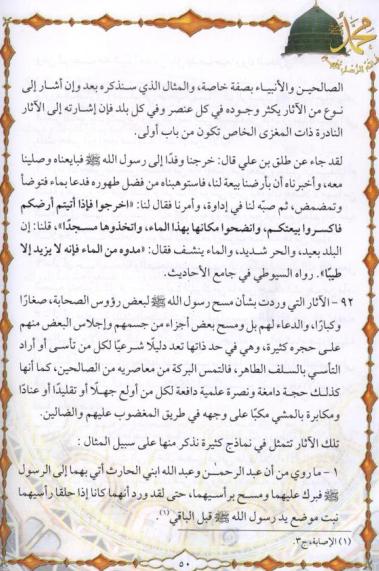 الصالحين والأنبياء بصفة خاصة، والمثال الذي سنذكره بعد وإن أشار إلى
نوع من الآثار يكثر وجوده في كل عنصر وفي كل بلد فإن إشارته إلى الآثار
النادرة ذات المغزى الخاص تكون من باب أولى.
لقد جاء عن طلق بن علي قال: خرجنا وفدًا إلى رسول الله ﷺ فبايعناه وصلينا
معه، وأخبرناه أن بأرضنا بيعة لنا، فاستوهبناه من فضل طهوره فدعا بماء فتوضأ
وتمضمض، ثم صبّه لنا في إداوة، وأمرنا فقال لنا: «اخرجوا فإذا أتيتم أرضكم
فاكسروا بيعتكم، وانضحوا مكانها بهذا الماء، واتخذوها مسجدًا»، قلنا: إن
البلد بعيد، والحر شديد، والماء ينشف فقال: «مدوه من الماء فإنه لا يزيد إلا
طيبًا». رواه السيوطي في جامع الأحاديث.
٩٢ - الآثار التي وردت بشأن مسح رسول الله ﷺ لبعض رؤوس الصحابة، صغارًا
وكبارًا، والدعاء لهم بل ومسح بعض أجزاء من جسمهم وإجلاس البعض منهم
على حجره كثيرة، وهي في حد ذاتها تعد دليلًا شرعيًا لكل من تأسى أو أراد
التأسي بالسلف الطاهر، فالتمس البركة من معاصريه من الصالحين، كما أنها
كذلك حجة دامغة ونصرة علمية دافعة لكل من أولع جهلًا أو تقليدًا أو عنادًا
ومكابرة بالمشي مكبًا على وجهه في طريق المغضوب عليهم والضالين.
تلك الآثار تتمثل في نماذج كثيرة نذكر منها على سبيل المثال :
١ - ما روي من أن عبد الرحمن وعبد الله ابني الحارث أتي بهما إلى الرسول
ﷺ فبرك عليهما ومسح برأسيهما، حتى لقد ورد أنهما كانا إذا حلقا رأسيهما
نبت موضع يد رسول الله ﷺ قبل الباقي (١).
(١) الإصابة، ج٣.
٥٠